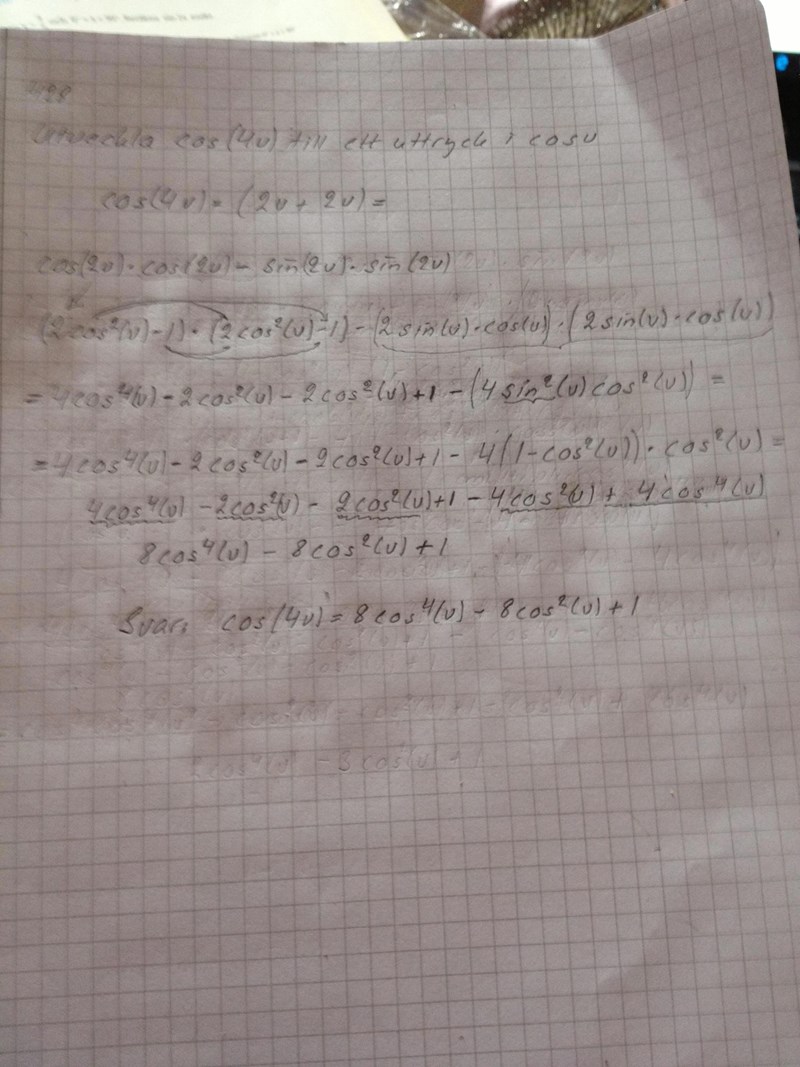 Utveckla cos(4v) till ett uttryck i cosv
cos(4v) = (2v + 2v) =
cos(2v)·cos(2v) - sin(2v)·sin(2v)
(2cos²(v)-1)·(2cos²(v)-1) - (2sin(v)·cos(v))·(2sin(v)·cos(v))
= 4cos⁴(v) - 2cos²(v) - 2cos²(v) + 1 - (4sin²(v)cos²(v)) =
= 4cos⁴(v) - 2cos²(v) - 2cos²(v) + 1 - 4(1-cos²(v))·cos²(v) =
4cos⁴(v) - 2cos²(v) - 2cos²(v) + 1 - 4cos²(v) + 4cos⁴(v)
8cos⁴(v) - 8cos²(v) + 1
Svar: cos(4v) = 8cos⁴(v) - 8cos²(v) + 1